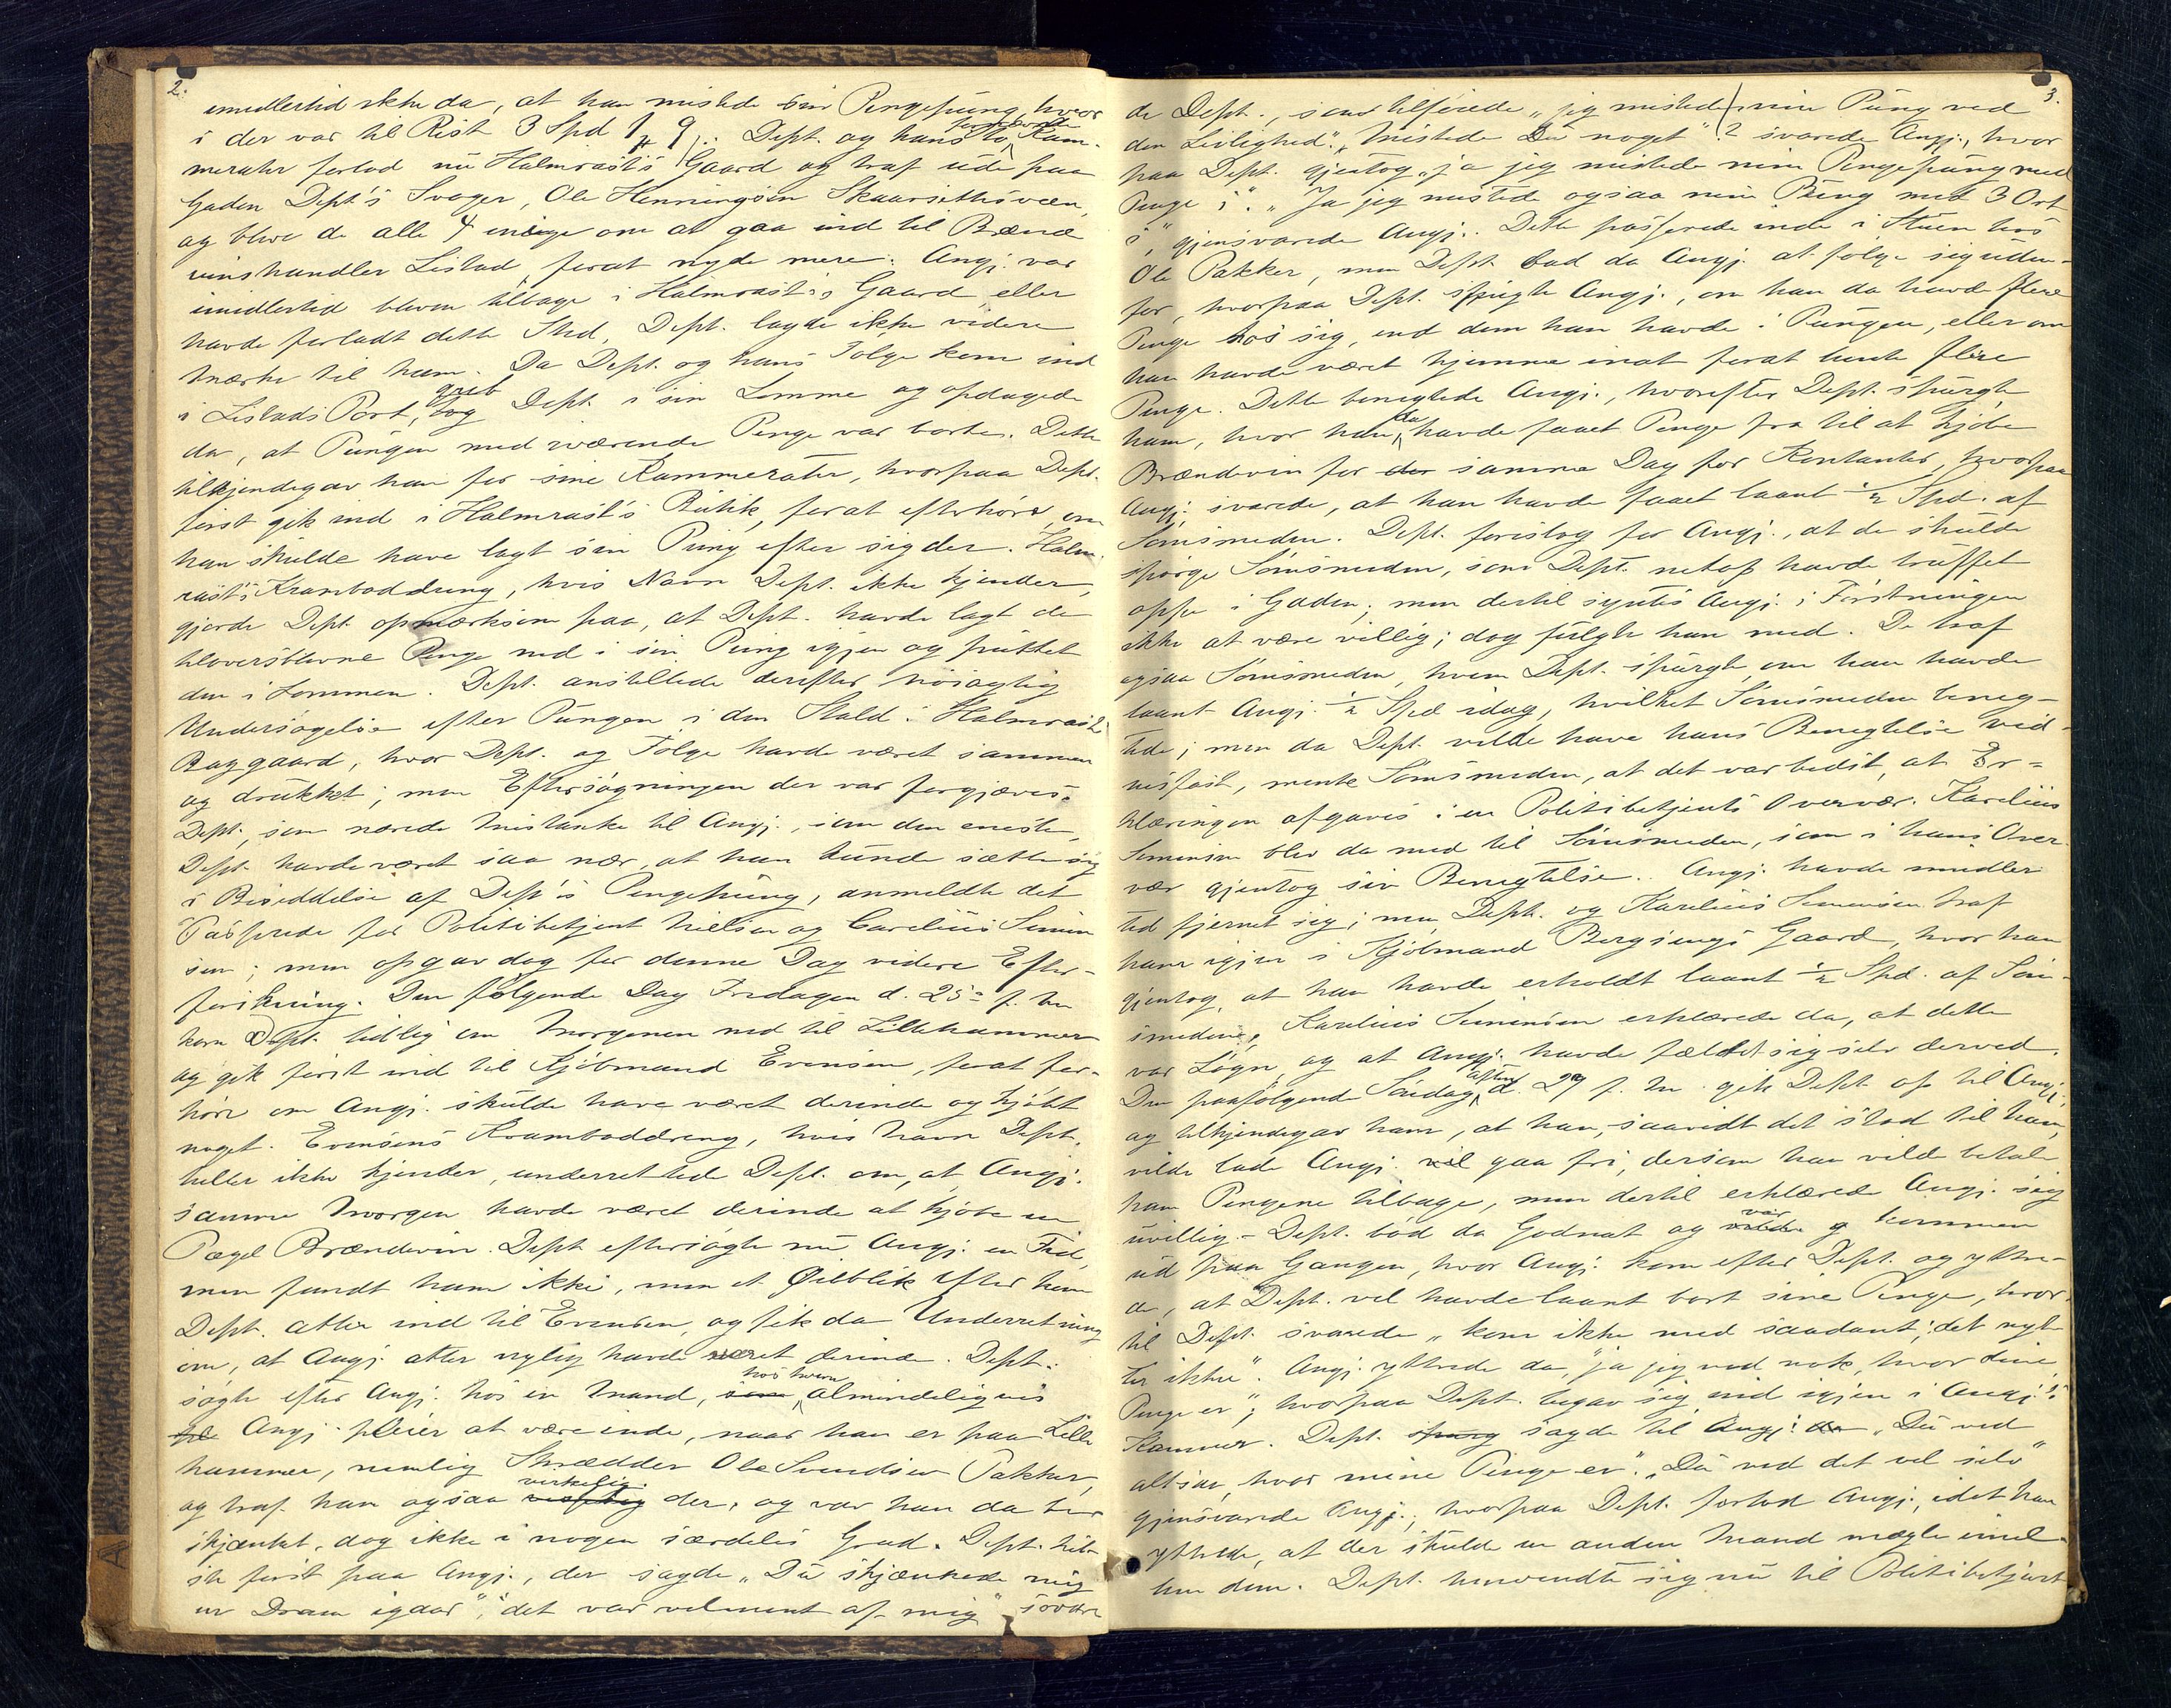 2.
imidlertid ikke da, at han mistede sin Pengepung, hvor
i der var til Rest 3 Spd 1 # 9 /: Dept. og hans to Kam-
merater forlod nu Halmrast's Gaard og traf ude paa
Gaden Dept's Svoger, Ole Henningsen Skaarsethsveen,
og blev de alle 4 enige om at gaa ind til Brænde
vinshandler Lislad, forat nyde mere. Angj. var
imidlertid bleven tilbage i Halmrast's Gaard eller
havde forladt dette Sted, Dept. lagde ikke videre
Mærke til ham. Da Dept. og hans Følge kom ind
i Lislads Port, tog greb Dept. i sin Lomme og opdagede
da, at Pungen med iværende Penge var borte. Dette
tilkjendegav han for sine Kammerater, hvorpaa Dept.
først gik ind i Halmrast's Butik, forat efterhøre, om
han skulde have lagt sin Pung efter sig der. Halm-
rast's Kramboddreng, hvis Navn Dept. ikke kjender,
gjorde Dept. opmærksom paa, at Dept. havde lagt de
tiloversblevne Penge ned i sin Pung igjen og puttet
den i Lommen. Dept. anstillede derefter nøiagtig
Undersøgelse efter Pungen i den Stald i Halmrasts
Baggaard, hvor Dept. og Følge havde været sammen
og drukket; men Eftersøgningen der var forgjæves.
Dept., som nærede Mistanke til Angj., som den eneste,
Dept. havde været saa nær, at han kunde sætte sig
i Besiddelse af Dept's Pengepung, anmeldte det
Passerede for Politibetjent Nielsen og Carelius Simen
sen; men opgav dog for denne Dag videre Efter-
forskning. Den følgende Dag Fredagen d. 25de f. M.
kom Dept. tidlig om Morgenen ned til Lillehammer
og gik først ind til Kjøbmand Evensen, forat for-
høre om Angj. skulde have været derinde og kjøbt
noget. Evensens Kramboddreng, hvis Navn Dept.
heller ikke kjender, underrettede Dept. om, at Angj.
samme Morgen havde været derinde at kjøbe en
Pægel Brændevin. Dept eftersøgte nu Angj. en Tid,
men fandt ham ikke, men et Øieblik efter kom
Dept. atter ind til Evensen, og fik da Underretning
om, at Angj. atter nylig havde været derinde. Dept.
søgte efter Angj. hos en Mand, som hos hvem almindeligvis
Angj. pleier at være inde, naar han er paa Lille
hammer, nemlig Skrædder Ole Svendsen Pakker,
og traf han ogsaa virkelig der, og var han da be
skjænket, dog ikke i nogen særdeles Grad. Dept. hil-
ste først paa Angj., der sagde „Du skjænkede mig
en Dram igaar"; „det var velment af mig" svare
3.
de Dept., som tilføiede „jeg mistede min Pung ved
den Leilighed". „Mistede Du noget"? svarede Angj., hvor
paa Dept. gjentog „ja jeg mistede min Pengepung med
Penge i". „Ja jeg mistede ogsaa min Pung med 3 Ort
i", gjensvarede Angj. Dette passerede inde i Stuen hos
Ole Pakker, men Dept. bad da Angj. at følge sig uden-
for, hvorpaa Dept. spurgte Angj., om han da havde flere
Penge hos sig, end dem han havde i Pungen, eller om
han havde været hjemme inat forat hente flere
Penge. Dette benegtede Angj., hvorefter Dept. spurgte
ham, hvor han da havde faaet Penge fra til at kjøbe
Brændevin for den samme Dag for Kontanter, hvorpaa
Angj. svarede, at han havde faaet laant ½ Spd. af
Sømsmeden. Dept. foreslog for Angj., at de skulde
spørge Sømsmeden, som Dept. netop havde truffet
oppe i Gaden; men dertil syntes Angj. i Førstningen
ikke at være villig; dog fulgte han med. De traf
ogsaa Sømsmeden, hvem Dept. spurgte, om han havde
laant Angj. ½ Spd idag, hvilket Sømsmeden beneg-
tede; men da Dept. vilde have hans Benegtelse vid-
nesfast, mente Sømsmeden, at det var bedst, at Er-
klæringen afgaves i en Politibetjents Overvær. Karelius
Simensen blev da med til Sømsmeden, som i hans Over
vær gjentog sin Benegtelse. Angj. havde imidler
tid fjernet sig; men Dept. og Karelius Simensen traf
ham igjen i Kjøbmand Bergsengs Gaard, hvor han
gjentog, at han havde erholdt laant ½ Spd. af Søm-
smeden. Karelius Simensen erklærede da, at dette
var Løgn, og at Angj. havde fældet sig selv derved.
Den paafølgende Søndag aften d. 27 f. M. gik Dept. op til Angj.,
og tilkjendegav ham, at han, saavidt det stod til ham,
vilde lade Angj. vel gaa fri, dersom han vilde betale
ham Pengene tilbage, men dertil erklærede Angj. sig
uvillig. Dept. bød da Godnat og var kommen
ud paa Gangen, hvor Angj. kom efter Dept. og yttre-
de, at Dept. vel havde laant bort sine Penge, hvor-
til Dept. svarede „kom ikke med saadant; det nyt-
ter ikke". Angj. yttrede da, „ja jeg ved nok, hvor dine
Penge er"; hvorpaa Dept. begav sig ind igjen i Angj.'s
Kammer. Dept. sagde til Angj. „Du ved
altsaa, hvor mine Penge er". „Du ved det vel selv"
gjensvarede Angj., hvorpaa Dept. forlod Angj., idet han
yttrede, at der skulde en anden Mand mægle imel-
lem dem. Dept. henvendte sig nu til Politibetjent